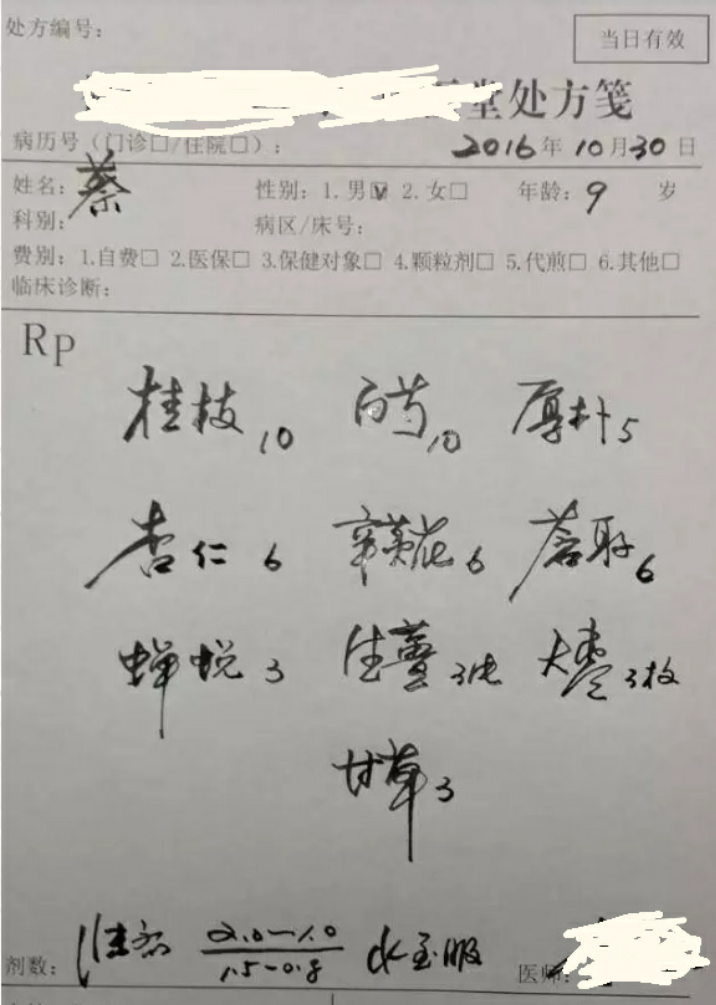 处方编号:
当日有效
堂处方笺
病历号(门诊□/住院□): 2016年10月30日
姓名: 蔡 性别: 1.男☑ 2.女□ 年龄: 9 岁
科别: 病区/床号:
费别: 1.自费□ 2.医保□ 3.保健对象□ 4.颗粒剂□ 5.代煎□ 6.其他□
临床诊断:
Rp
桂枝10 白芍10 厚朴5
杏仁6 辛荑花6 苍耳6
蝉蜕3 生薑3片 大枣3枚
甘草3
剂数: 2.0-1.0 医师:
1.5-0.8